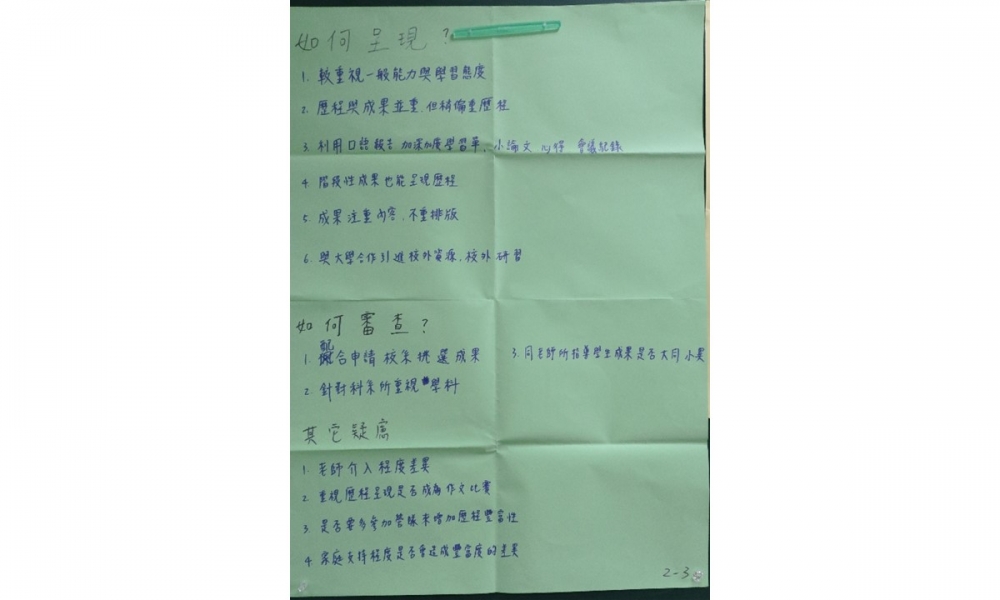 如何呈現？
1. 較重視一般能力與學習態度
2. 歷程與成果並重,但稍偏重歷程
3. 利用口語報告 加深加廣學習單, 小論文 心得 會議紀錄
4. 階段性成果也能呈現歷程
5. 成果注重內容,不重排版
6. 與大學合作引進校外資源,校外研習
如何審查？
1. 配合申請校系挑選成果
2. 針對科系所重視學科
3. 同老師所指導學生成果是否大同小異
其它疑慮
1. 老師介入程度差異
2. 重視歷程呈現是否成為作文比賽
3. 是否要多參加營隊來增加歷程豐富性
4. 家庭支持程度是否會造成豐富度的差異
2-3